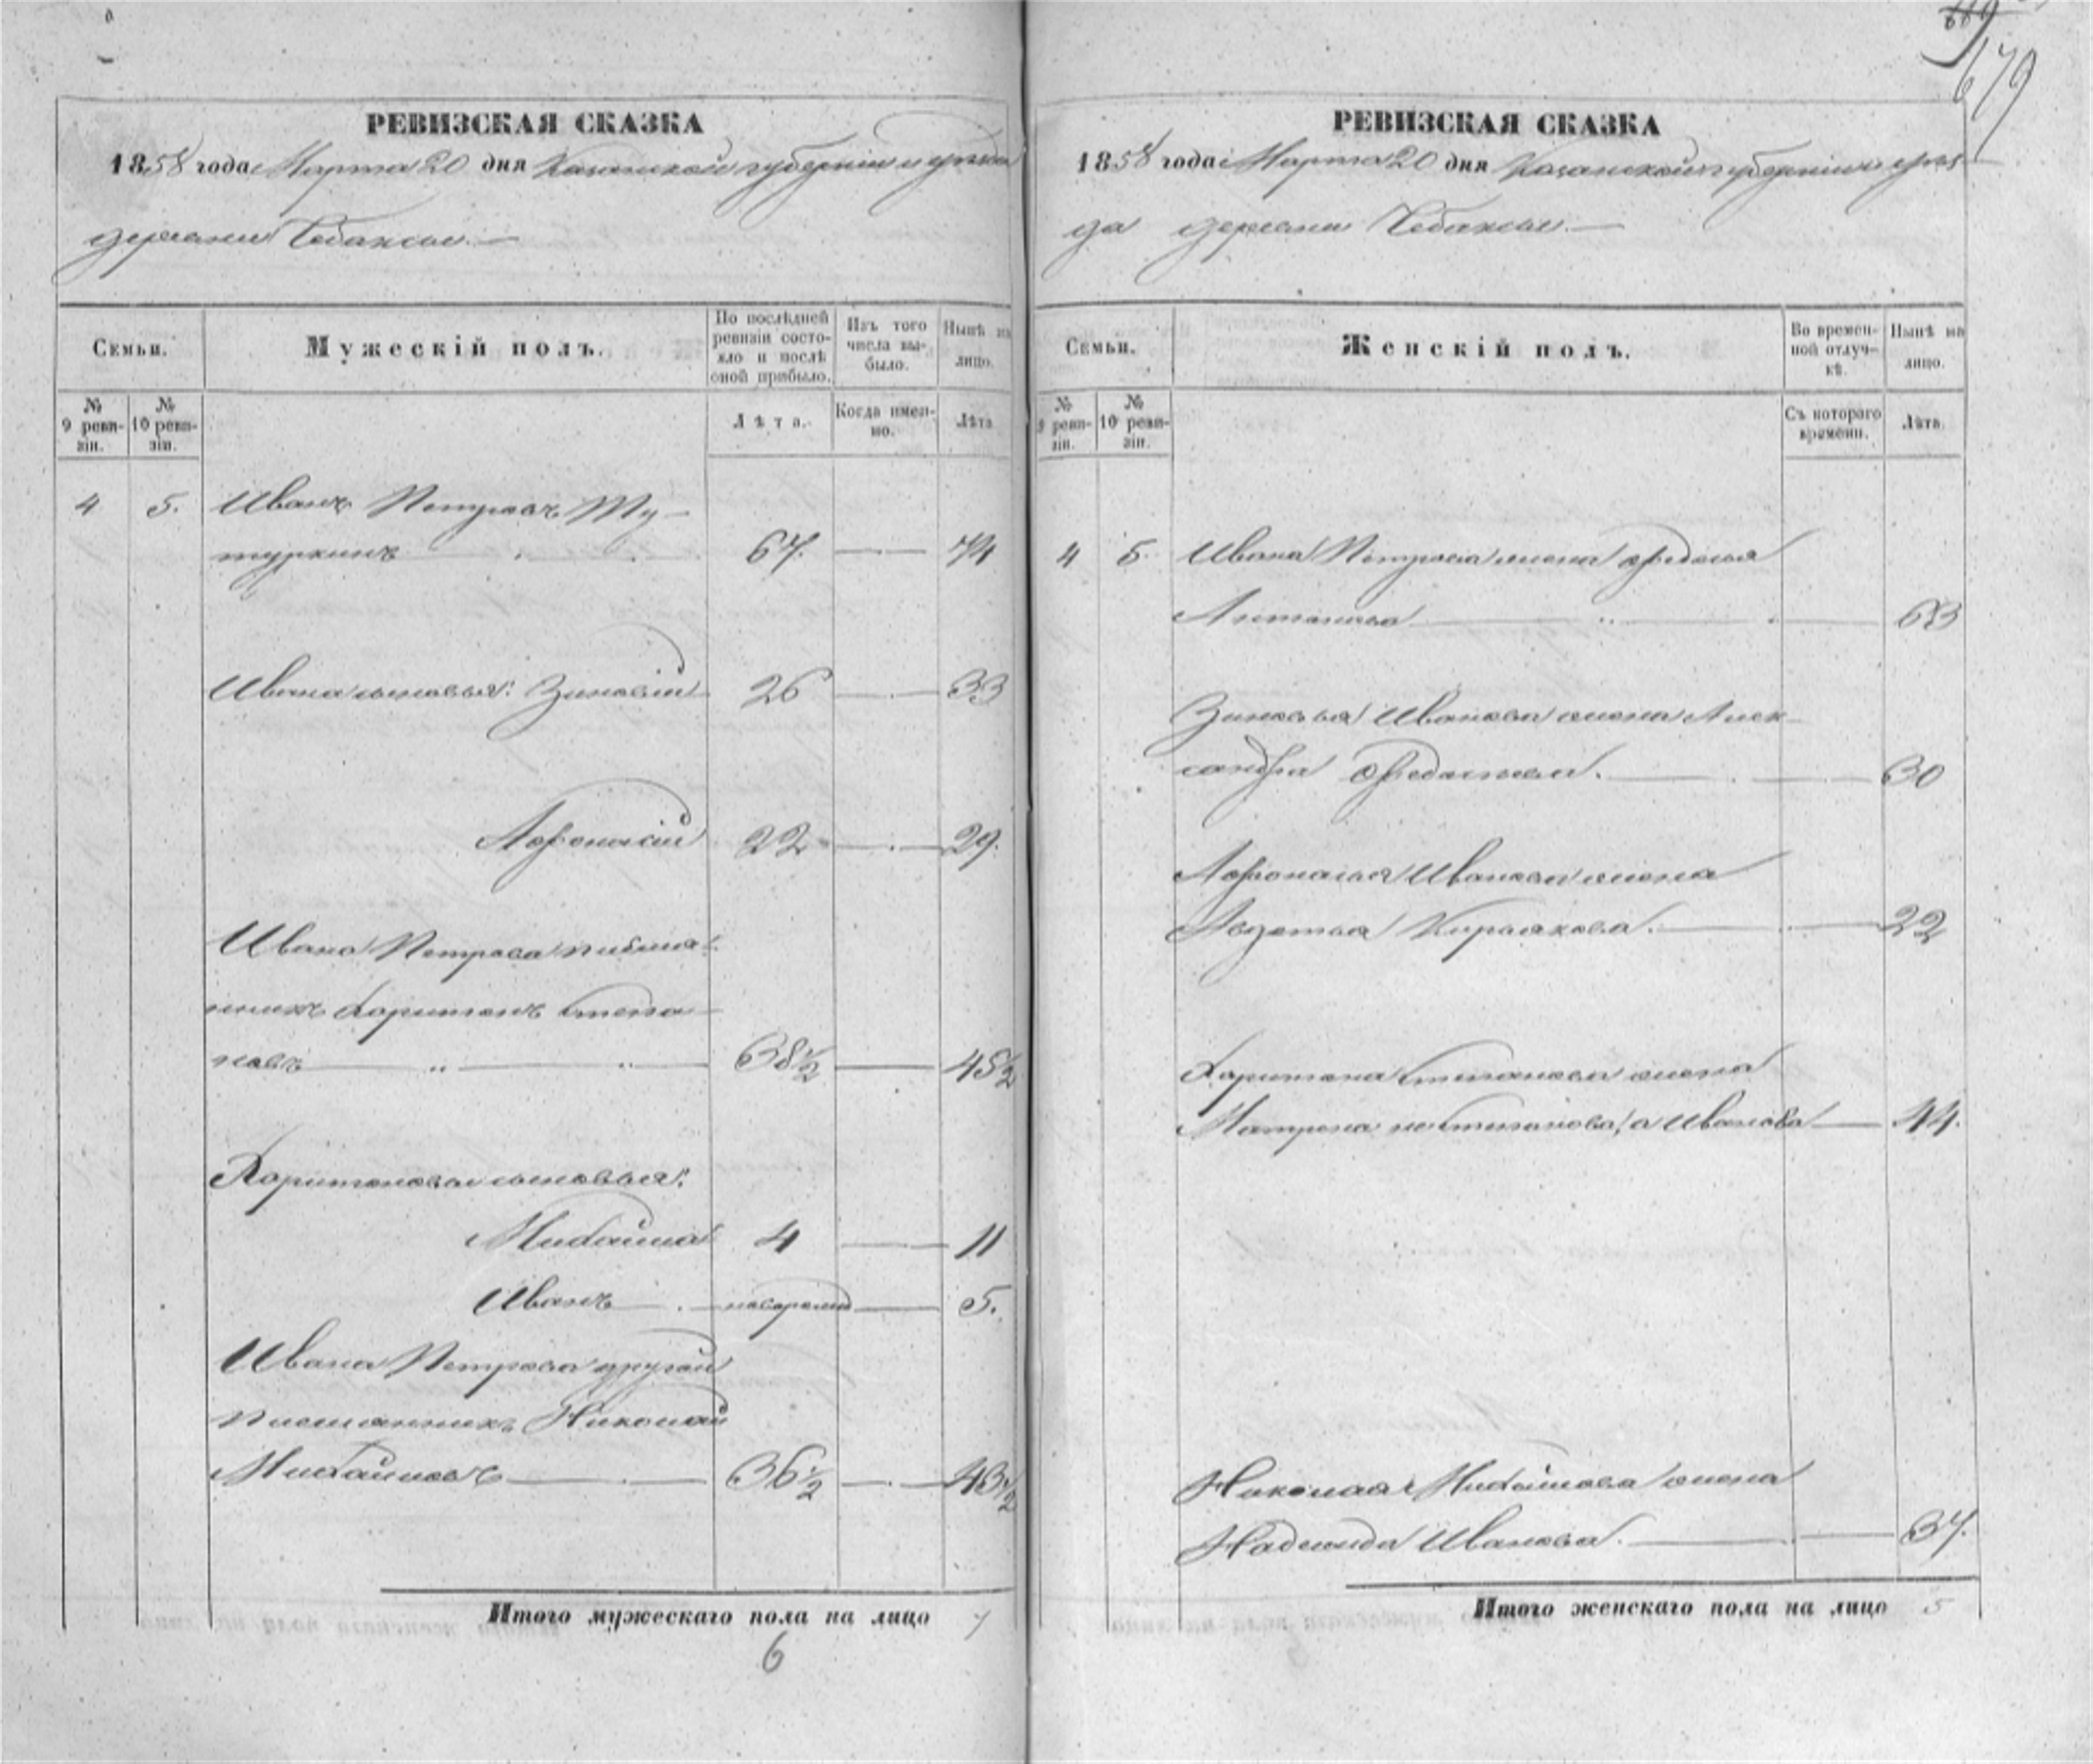 679
РЕВИЗСКАЯ СКАЗКА
1858 года Марта 20 дня Казанской губерніи и уезда
деревни Чебаксы.
Семьи.
Мужескій полъ.
По послѣдней ревизіи состояло и послѣ оной прибыло.
Изъ того числа выбыло.
Нынѣ на лицо.
№ 9 ревизіи.
№ 10 ревизіи.
Лѣта.
Когда именно.
Лѣта
4 5. Иванъ Петровъ Ту-
туркинъ 67. 74
Ивана сыновья: Зиновій 26 33
Афонасій 22 29.
Ивана Петрова племян-
никъ Харитонъ Степа-
новъ 38½ 45½
Харитоновы сыновья:
Михайла 4 11
Иванъ новорожд 5.
Ивана Петрова другой
племянникъ Николай
Михайловъ 36½ 43½
Итого мужескаго пола на лицо 7
6
РЕВИЗСКАЯ СКАЗКА
1858 года Марта 20 дня Казанской губерніи и уез-
да деревни Чебаксы.
Семьи.
Женскій полъ.
Во временной отлучкѣ.
Нынѣ на лицо.
№ 9 ревизіи.
№ 10 ревизіи.
Съ котораго времени.
Лѣта.
4 5. Ивана Петрова жена Федосья
Антонова 63
Зиновья Иванова жена Алек-
сандра Федосьева. 30
Афонасья Иванова жена
Авдотья Кирьякова. 22
Харитона Степанова жена
Матрена не Степанова, а Иванова 44.
Николая Михайлова жена
Надежда Иванова. 37.
Итого женскаго пола на лицо 5